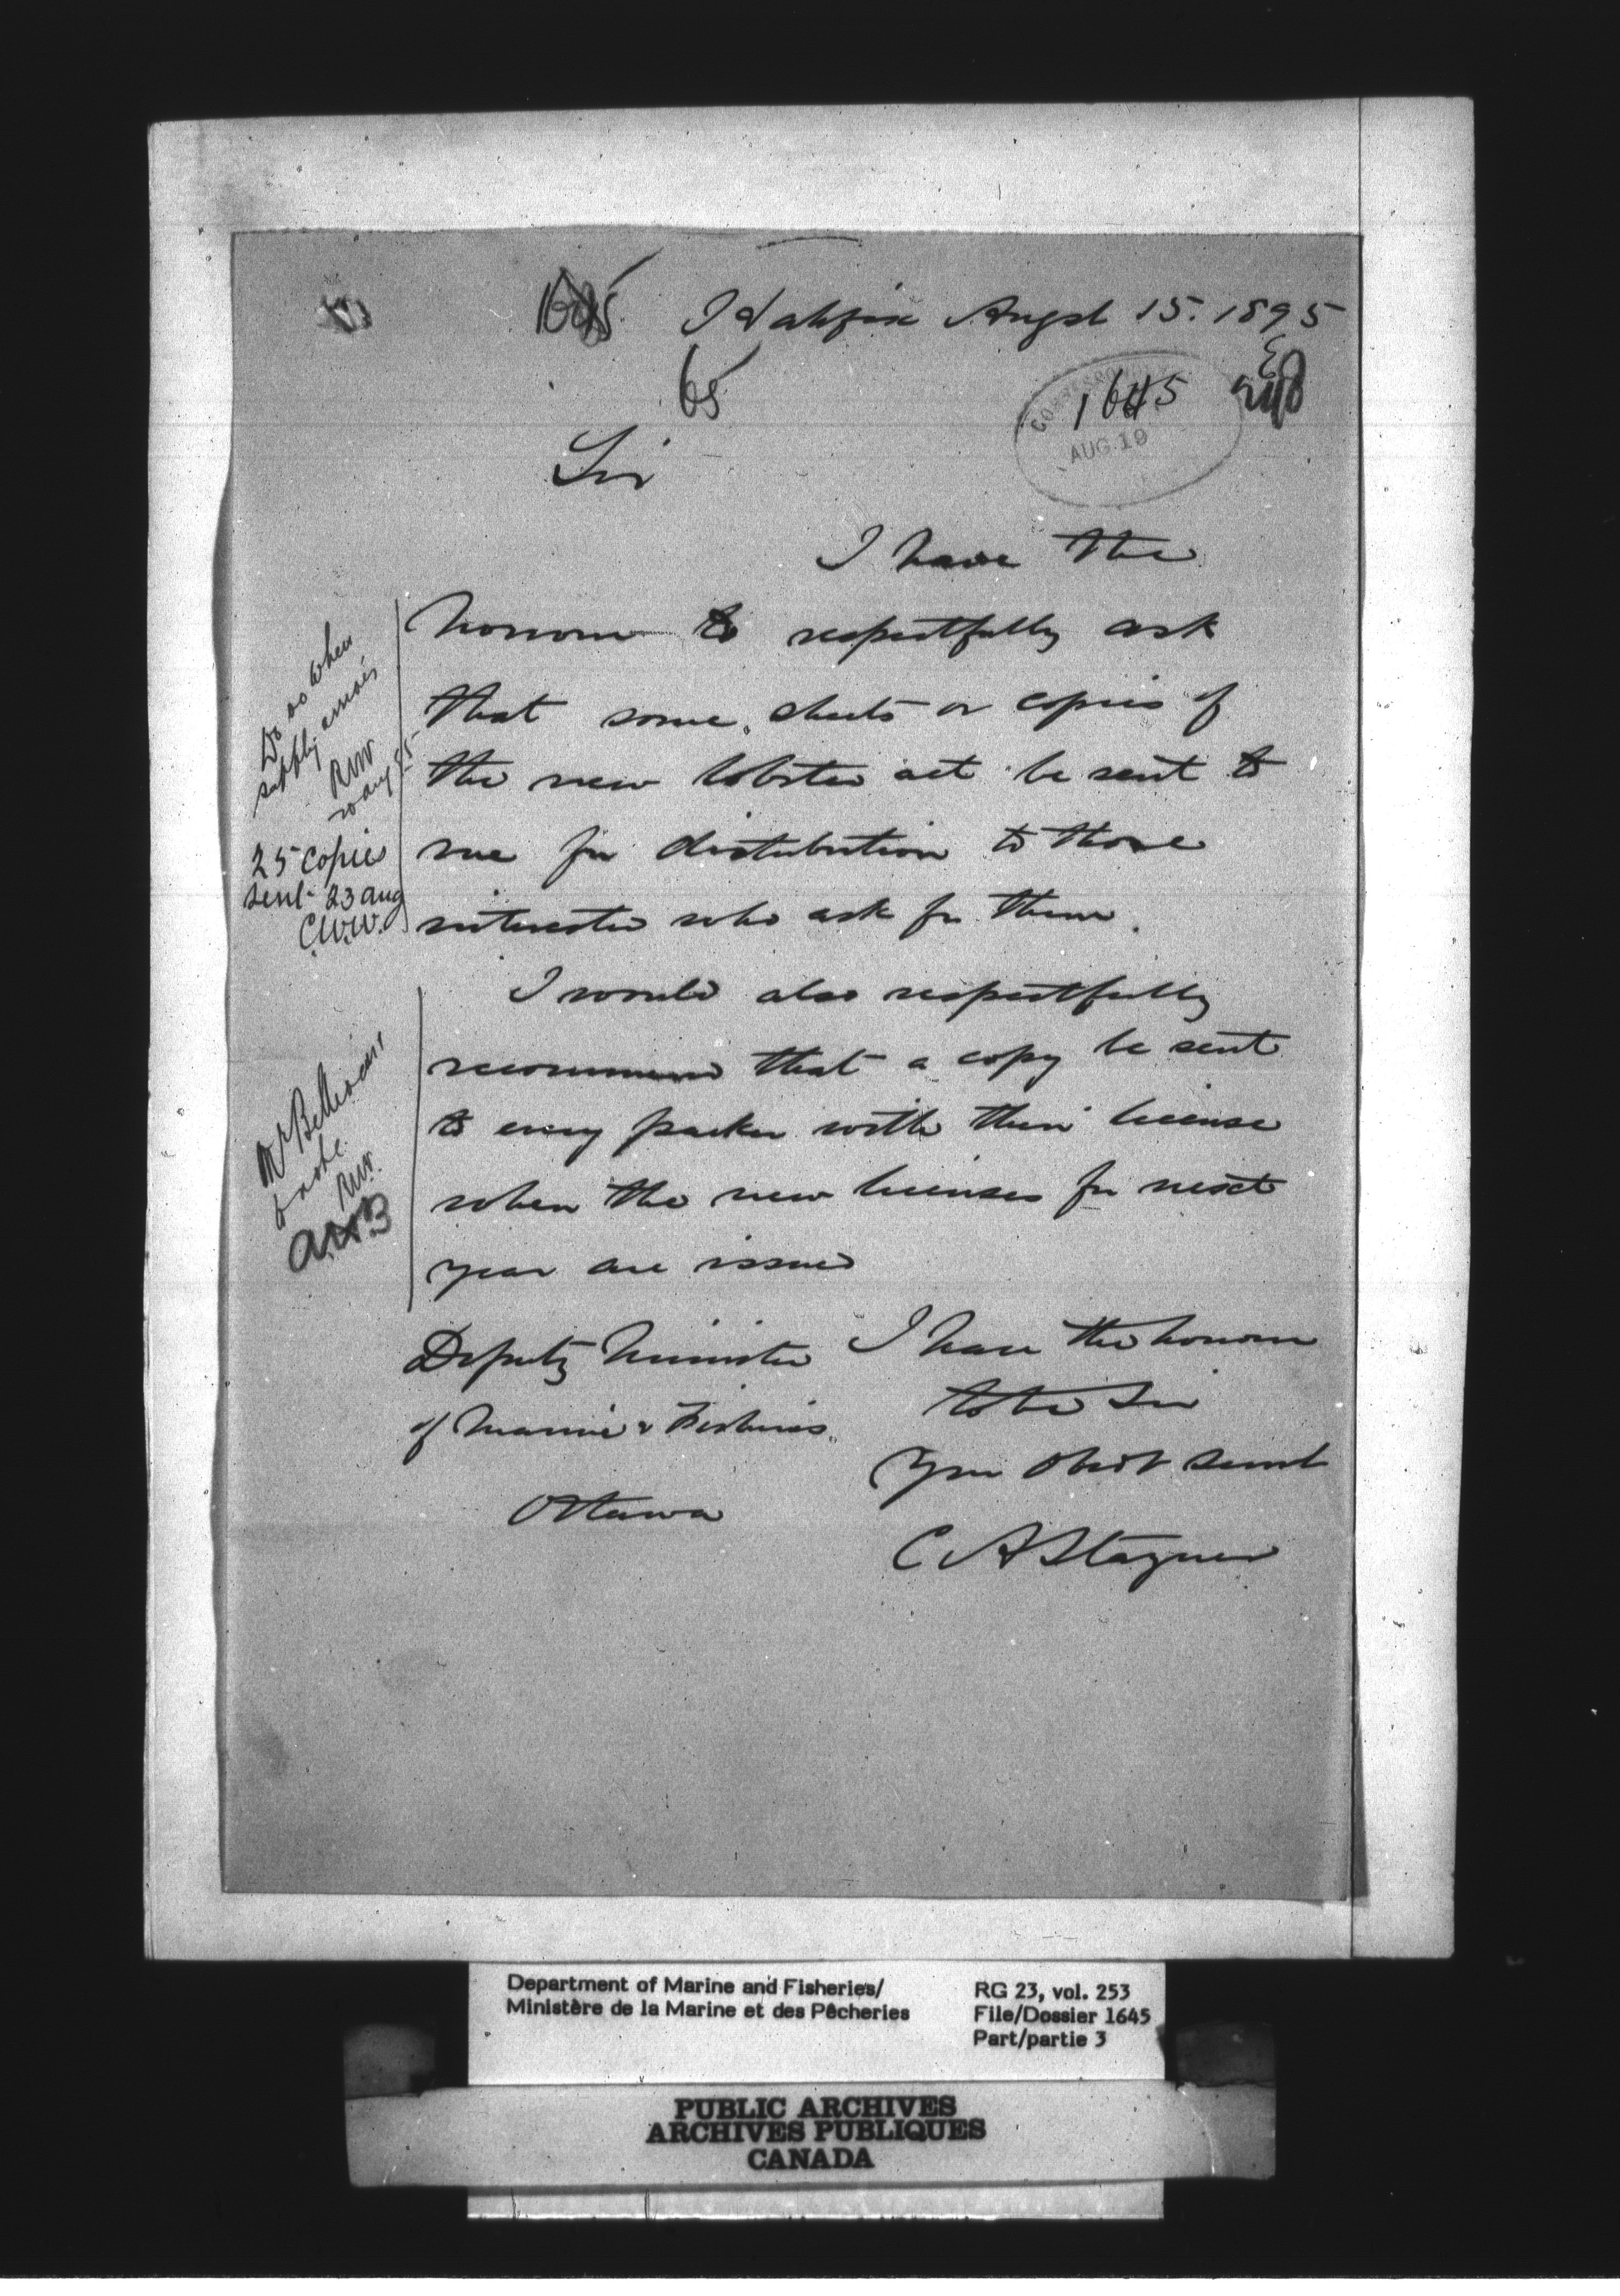 1645
Halifax Augst 15. 1895
65
1645
AUG 19
Sir
I have the
honour to respectfully ask
that some sheets or copies of
the new lobster act be sent to
me for distribution to those
interested who ask for them.
I would also respectfully
recommend that a copy be sent
to every packer with their license
when the new licenses for next
year are issued
Do so when
supply arrives
RW
25 copies
sent 23 aug
C.W.W.
Mr
to note
RW.
Deputy Minister
of Marine & Fisheries.
Ottawa
I have the honour
to be Sir
Your Obedt Servt
C A Stayner
Department of Marine and Fisheries/
Ministère de la Marine et des Pêcheries
RG 23, vol. 253
File/Dossier 1645
Part/partie 3
PUBLIC ARCHIVES
ARCHIVES PUBLIQUES
CANADA